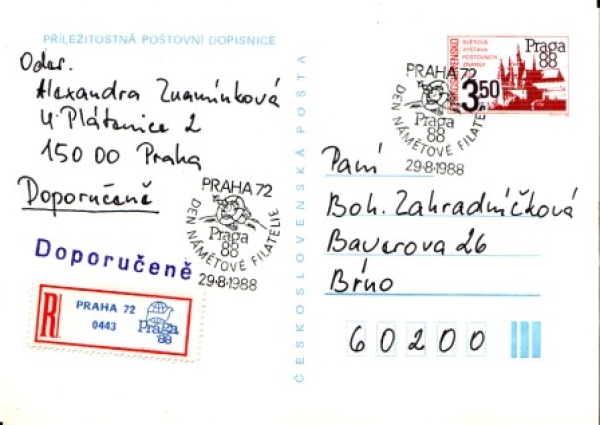 PŘÍLEŽITOSTNÁ POŠTOVNÍ DOPISNICE
Odes.
Alexandra Znamínková
U Plátenice 2
150 00 Praha
Doporučeně
Doporučeně
R
PRAHA 72
0443
Praga
88
PRAHA 72
DEN NÁMĚTOVÉ FILATELIE
Praga
88
29.8.1988
ČESKOSLOVENSKÁ POŠTA
ČESKOSLOVENSKO
SVĚTOVÁ
VÝSTAVA
POŠTOVNÍCH
ZNÁMEK
Praga
88
3,50
PRAHA 72
DEN NÁMĚTOVÉ FILATELIE
Praga
88
29.8.1988
Paní
Boh. Zahradníčková
Bauerova 26
Brno
60200